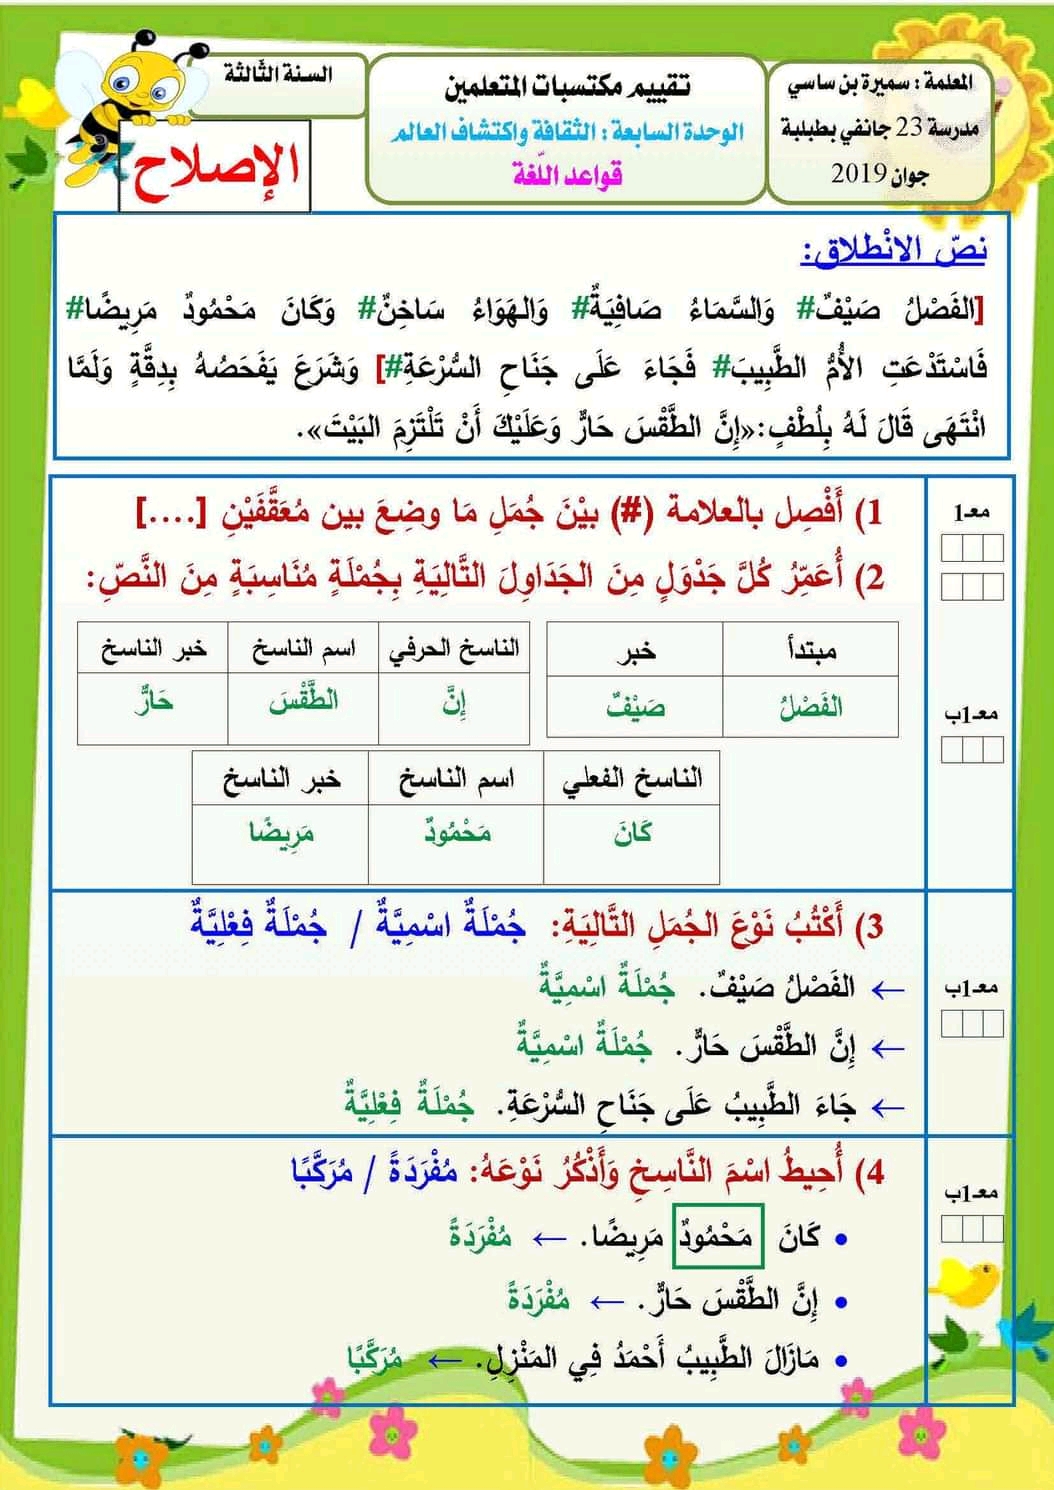 المعلمة : سميرة بن ساسي
مدرسة 23 جانفي بطبلبة
جوان 2019
تقييم مكتسبات المتعلمين
الوحدة السابعة : الثقافة واكتشاف العالم
قواعد اللّغة
السنة الثّالثة
الإصلاح
نصّ الانْطلاق:
[الفَصْلُ صَيْفٌ# وَالسَّمَاءُ صَافِيَةٌ# وَالهَوَاءُ سَاخِنٌ# وَكَانَ مَحْمُودٌ مَرِيضًا#
فَاسْتَدْعَتِ الأُمُّ الطَّبِيبَ# فَجَاءَ عَلَى جَنَاحِ السُّرْعَةِ#] وَشَرَعَ يَفَحَصُهُ بِدِقَّةٍ وَلَمَّا
انْتَهَى قَالَ لَهُ بِلُطْفٍ:«إِنَّ الطَّقْسَ حَارٌّ وَعَلَيْكَ أَنْ تَلْتَزِمَ البَيْتَ».
معـ1
1) أَفْصِل بالعلامة (#) بيْنَ جُمَلِ مَا وضِعَ بين مُعَقَّفَيْنِ [....]
2) أُعَمِّرُ كُلَّ جَدْوَلٍ مِنَ الجَدَاوِلَ التَّالِيَةِ بِجُمْلَةٍ مُنَاسِبَةٍ مِنَ النَّصِّ:
معـ1ب
مبتدأ خبر
الفَصْلُ صَيْفٌ
الناسخ الحرفي اسم الناسخ خبر الناسخ
إِنَّ الطَّقْسَ حَارٌّ
الناسخ الفعلي اسم الناسخ خبر الناسخ
كَانَ مَحْمُودٌ مَرِيضًا
معـ1ب
3) أَكْتُبُ نَوْعَ الجُمَلِ التَّالِيَةِ: جُمْلَةٌ اسْمِيَّةٌ / جُمْلَةٌ فِعْلِيَّةٌ
← الفَصْلُ صَيْفٌ. جُمْلَةٌ اسْمِيَّةٌ
← إِنَّ الطَّقْسَ حَارٌّ. جُمْلَةٌ اسْمِيَّةٌ
← جَاءَ الطَّبِيبُ عَلَى جَنَاحِ السُّرْعَةِ. جُمْلَةٌ فِعْلِيَّةٌ
معـ1ب
4) أُحِيطُ اسْمَ النَّاسِخِ وَأَذْكُرُ نَوْعَهُ: مُفْرَدَةً / مُرَكَّبًا
• كَانَ مَحْمُودٌ مَرِيضًا. ← مُفْرَدَةً
• إِنَّ الطَّقْسَ حَارٌّ. ← مُفْرَدَةً
• مَازَالَ الطَّبِيبُ أَحْمَدُ فِي المَنْزِلِ. ← مُرَكَّبًا